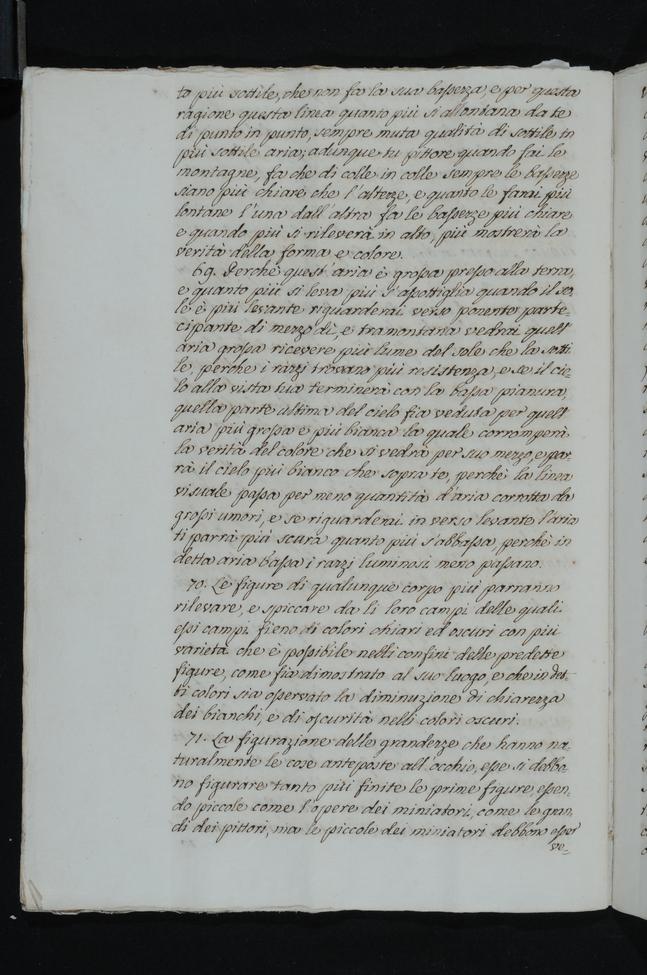 to più sottile, che non fa la sua baſsezza, e per questa
ragione questa linea quanto più si allontana da te
di punto in punto, sempre muta qualità di sottile in
più sottile aria; adunque tu pittore quando fai le
montagne, fa che di colle in colle sempre le baſsezze
siano più chiare che l'altezze, e quanto le farai più
lontane l'una dall'altra fa le baſsezze più chiare
e quando più si rileverà in alto, più mostrerà la
verità della forma e colore.
69. Perchè quest'aria è groſsa preſso alla terra,
e quanto più si leva più s'aſsottiglia quando il so-
le è più levante riguarderai verso ponente parte-
cipante di mezzo dì, e tramontana vedrai quell'
aria groſsa ricevere più lume dal sole che la sotti-
le, perche i razzi trovano più resistenza, e se il cie-
lo alla vista tua terminerà con la baſsa pianura,
quella parte ultima del cielo fia veduta per quell'
aria più groſsa e più bianca la quale corromperà
la verità del colore che si vedrà per suo mezzo, e par-
rà il cielo più bianco che sopra te, perchè la linea
visuale paſsa per meno quantità d'aria corrotta da
groſsi umori, e se riguarderai in verso levante l'aria
ti parrà più scura quanto più s'abbaſsa, perchè in
detta aria baſsa i razzi luminosi meno paſsano.
70. Le figure di qualunque corpo più parranno
rilevare, e spiccare da li loro campi delle quali
eſsi campi fieno di colori chiari ed oscuri con più
varietà che è poſsibile nelli confini delle predette
figure, come fia dimostrato al suo luogo, e che in det-
ti colori sia oſservato la diminuzione di chiarezza
dei bianchi, e di oscurità nelli colori oscuri.
71. La figurazione delle grandezze che hanno na-
turalmente le cose anteposte all'occhio, eſse si debbo-
no figurare tanto più finite le prime figure, eſsen-
do piccole come l'opere dei miniatori, come le gran-
di dei pittori, ma le piccole dei miniatori debbono eſser
ve-